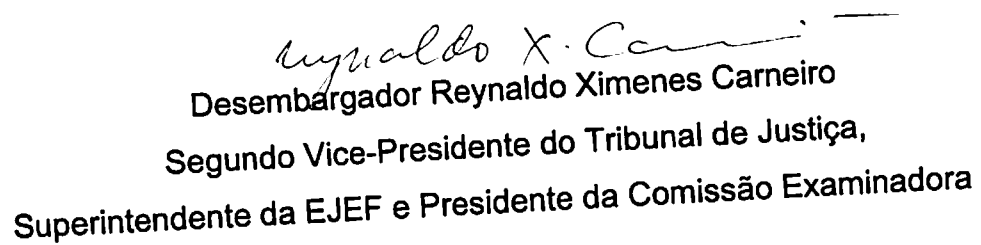 Reynaldo X. Ca
Desembargador Reynaldo Ximenes Carneiro
Segundo Vice-Presidente do Tribunal de Justiça,
Superintendente da EJEF e Presidente da Comissão Examinadora